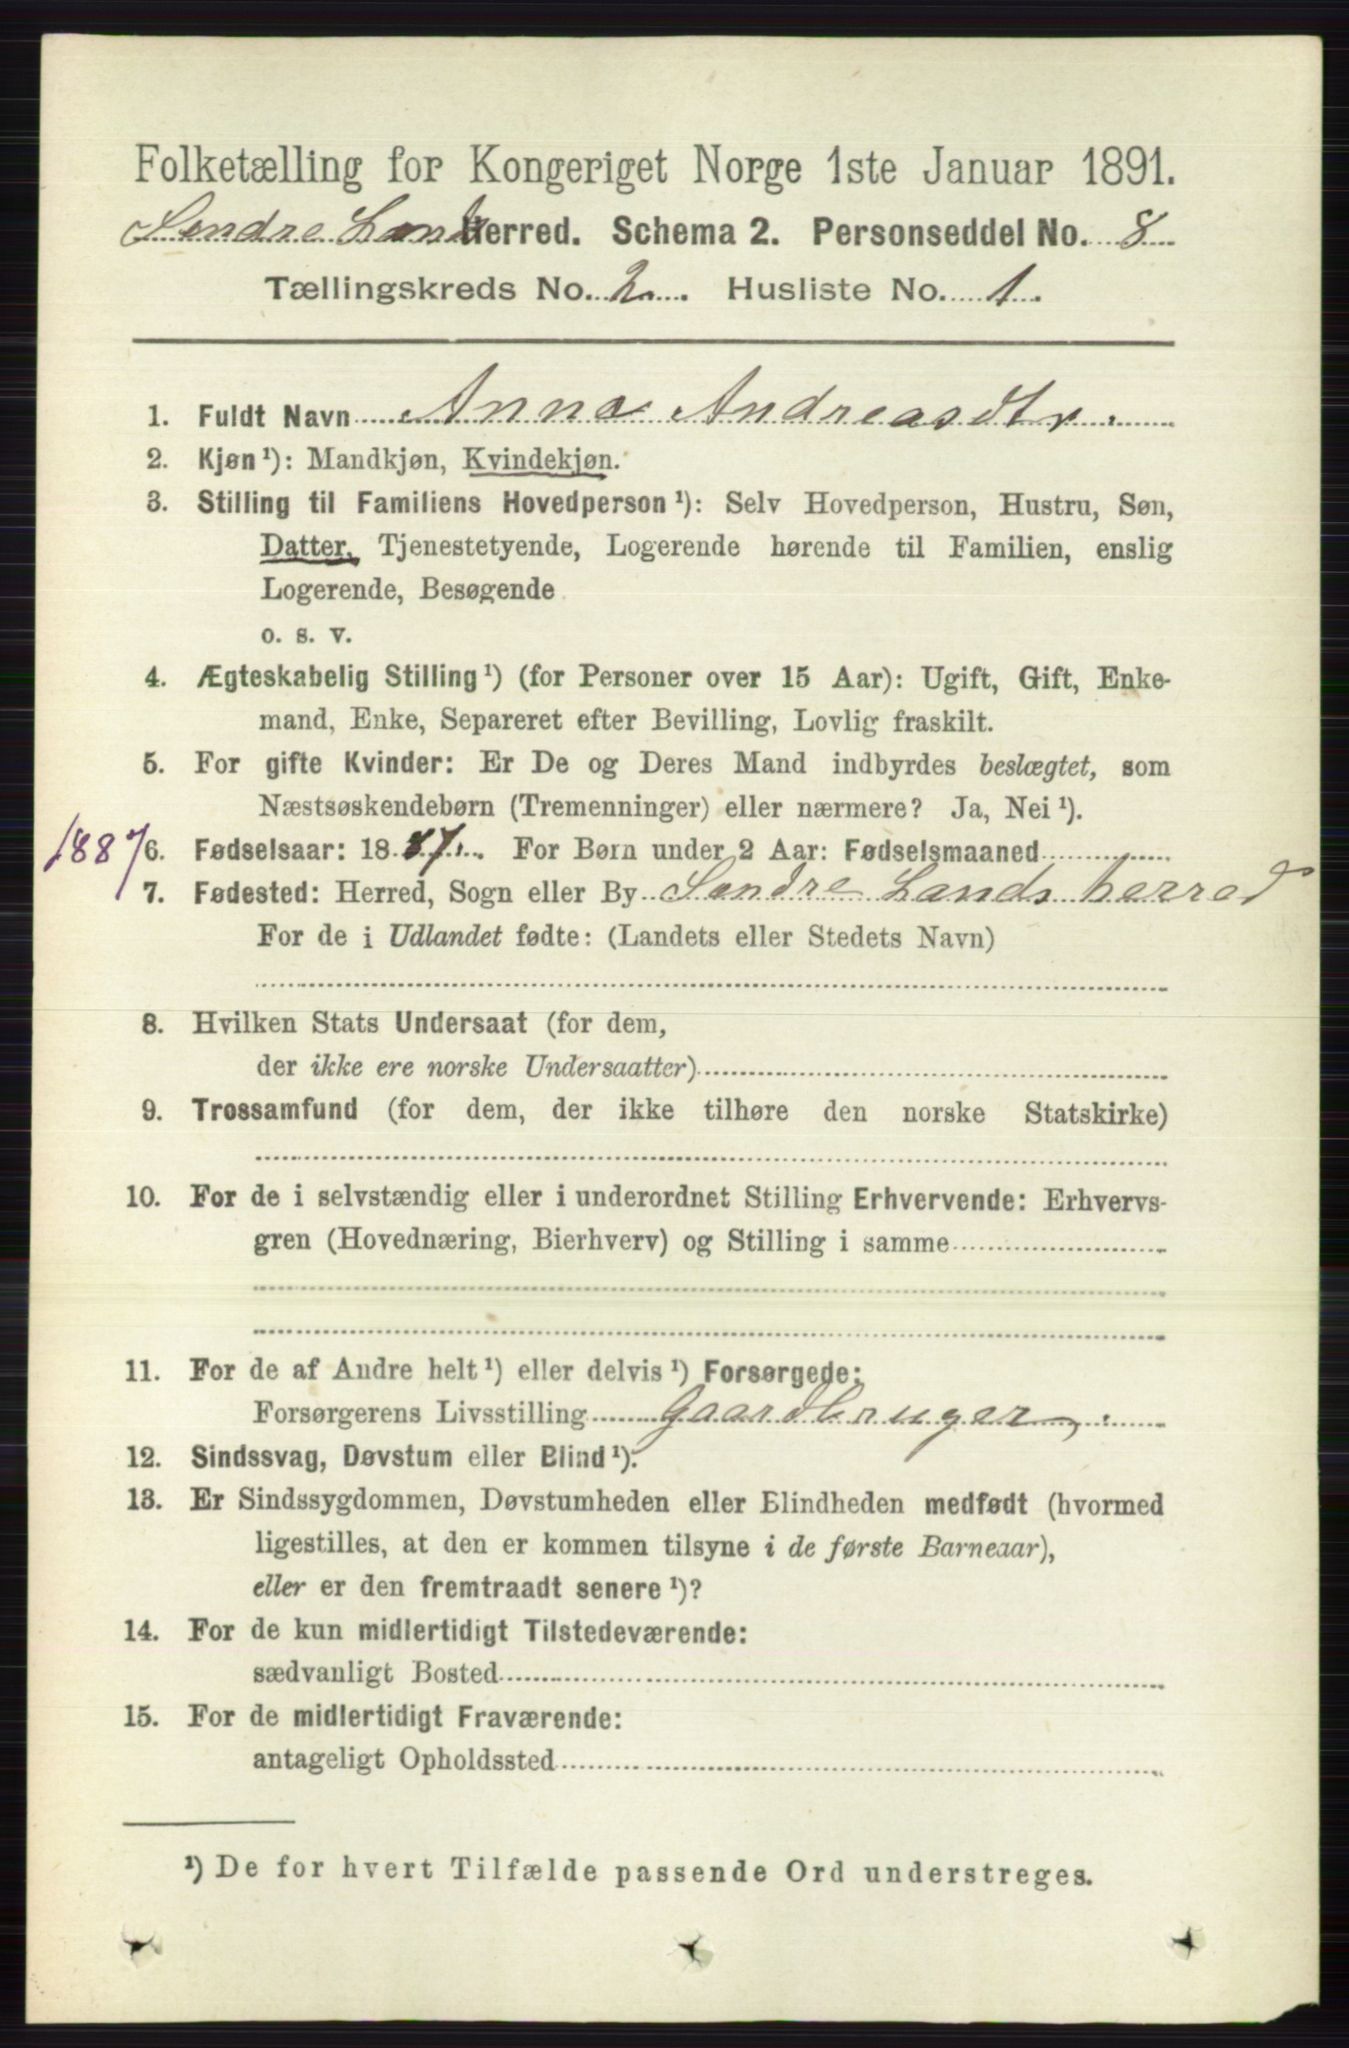 Folketælling for Kongeriget Norge 1ste Januar 1891.
Søndre Land Herred. Schema 2. Personseddel No. 8
Tællingskreds No. 2. Husliste No. 1.
1. Fuldt Navn Anna Andreasdtr.
2. Kjøn¹): Mandkjøn, Kvindekjøn.
3. Stilling til Familiens Hovedperson¹): Selv Hovedperson, Hustru, Søn,
Datter, Tjenestetyende, Logerende hørende til Familien, enslig
Logerende, Besøgende
o. s. v.
4. Ægteskabelig Stilling¹) (for Personer over 15 Aar): Ugift, Gift, Enke-
mand, Enke, Separeret efter Bevilling, Lovlig fraskilt.
5. For gifte Kvinder: Er De og Deres Mand indbyrdes beslægtet, som
Næstsøskendebørn (Tremenninger) eller nærmere? Ja, Nei¹).
1887 6. Fødselsaar: 1887. For Børn under 2 Aar: Fødselsmaaned
7. Fødested: Herred, Sogn eller By Søndre Lands herred
For de i Udlandet fødte: (Landets eller Stedets Navn)
8. Hvilken Stats Undersaat (for dem,
der ikke ere norske Undersaatter)
9. Trossamfund (for dem, der ikke tilhøre den norske Statskirke)
10. For de i selvstændig eller i underordnet Stilling Erhvervende: Erhvervs-
gren (Hovednæring, Bierhverv) og Stilling i samme
11. For de af Andre helt¹) eller delvis¹) Forsørgede:
Forsørgerens Livsstilling Gaardbruger.
12. Sindssvag, Døvstum eller Blind¹).
13. Er Sindssygdommen, Døvstumheden eller Blindheden medfødt (hvormed
ligestilles, at den er kommen tilsyne i de første Barneaar),
eller er den fremtraadt senere¹)?
14. For de kun midlertidigt Tilstedeværende:
sædvanligt Bosted
15. For de midlertidigt Fraværende:
antageligt Opholdssted
¹) De for hvert Tilfælde passende Ord understreges.